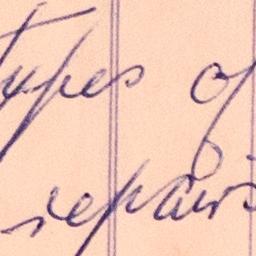 types of
repairs